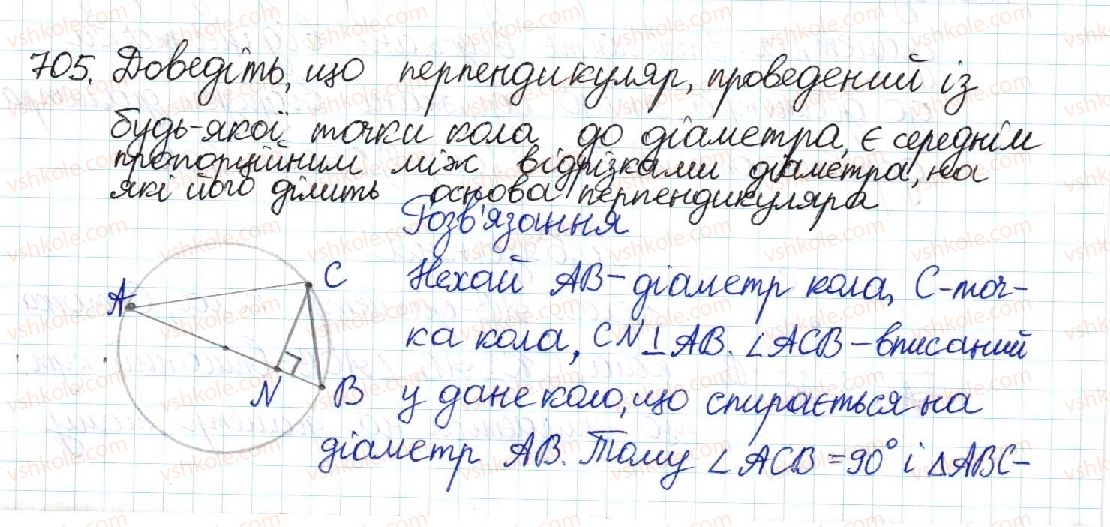 705. Доведіть, що перпендикуляр, проведений із
будь-якої точки кола до діаметра, є середнім
пропорційним між відрізками діаметра, на
які його ділить основа перпендикуляра
Розв'язання
A
C
N
B
Нехай AB - діаметр кола, C - точ-
ка кола, CN ⊥ AB. ∠ACB - вписаний
у дане коло, що спирається на
діаметр AB. Тому ∠ACB = 90° і ΔABC -